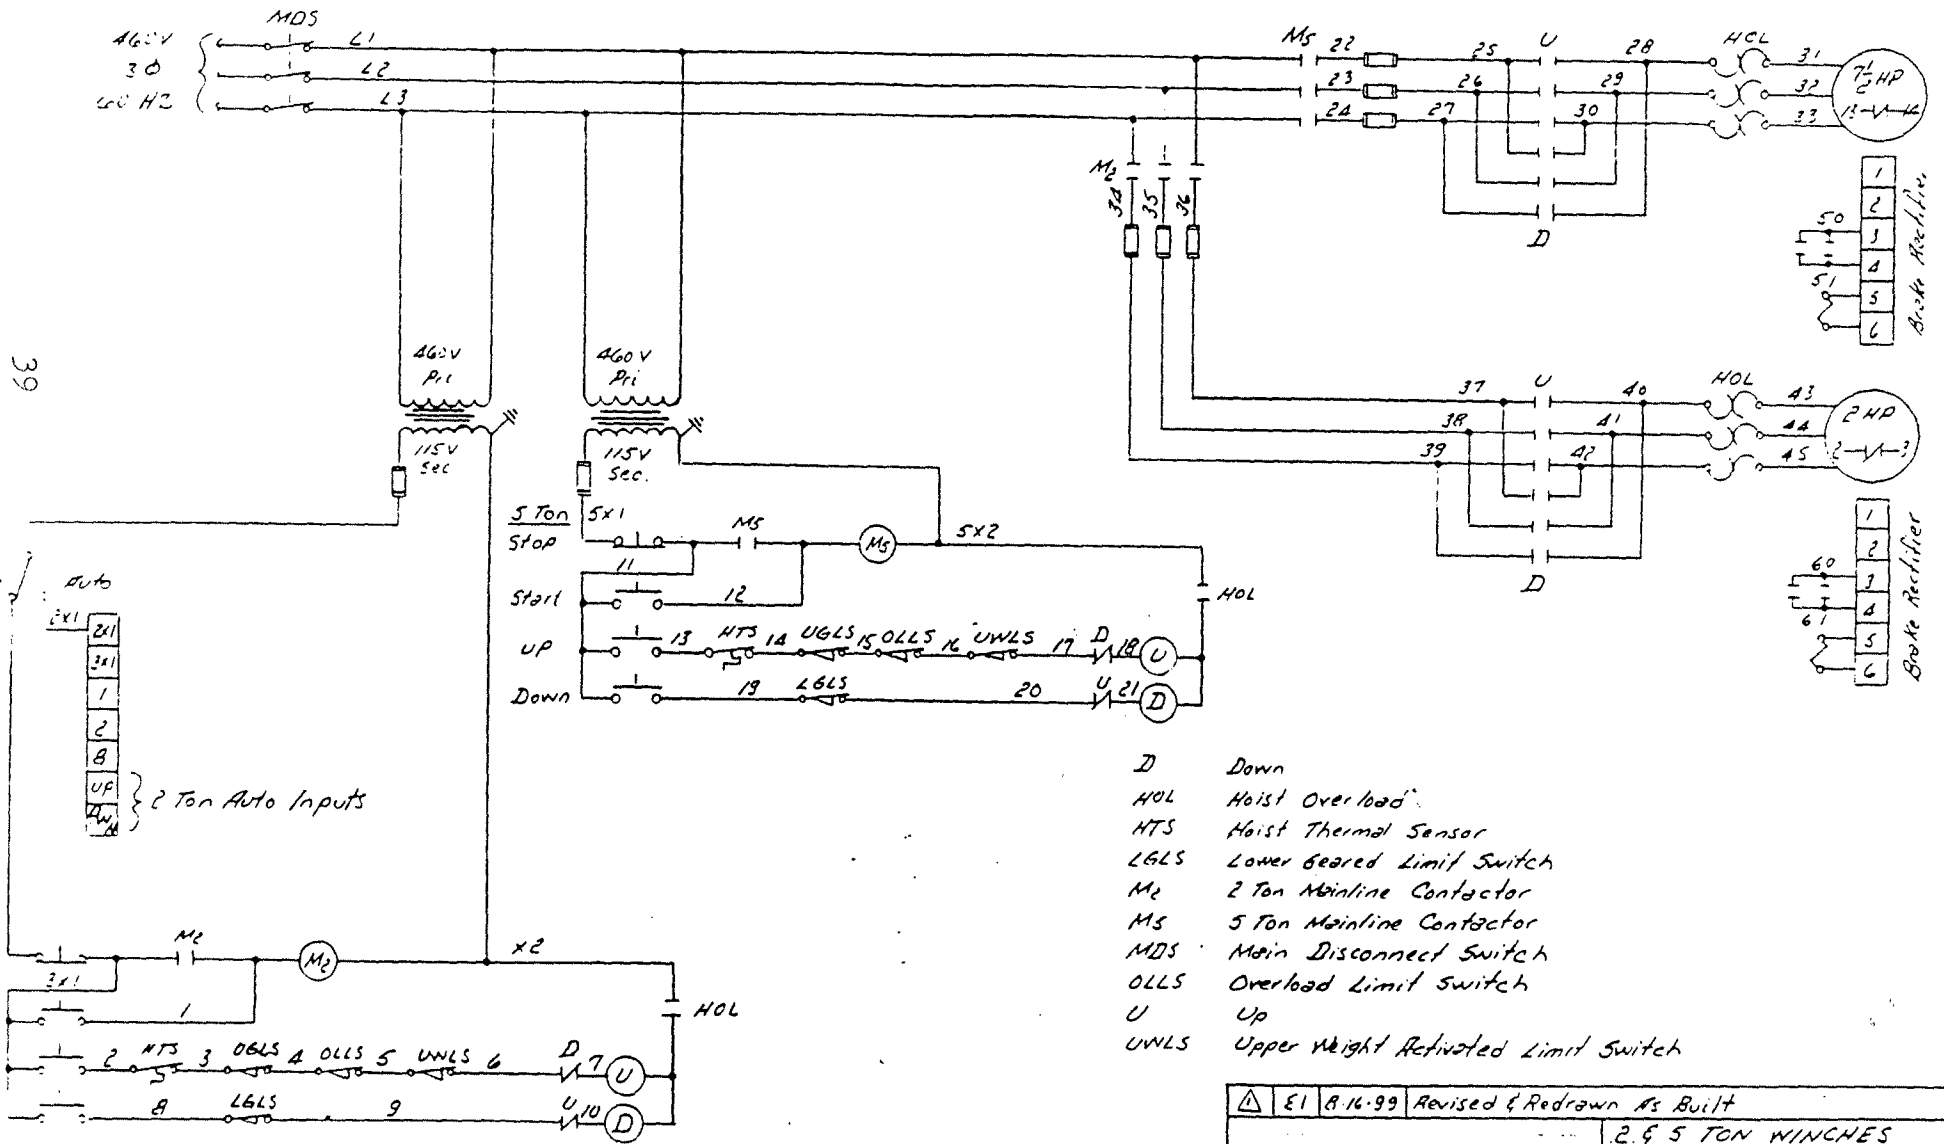 MDS
460V
3 Ø
60 HZ
L1
L2
L3
M5 22 25 U 28 HOL 31
23 26 29 32
24 27 30 33
7 1/2 HP
D
M2
34 35 36
1
2
3
4
5
6
50
51
Brake Rectifier
39
460V
Pri
115V
Sec
460V
Pri
115V
Sec.
37 U 40 HOL 43
38 41 44
39 42 45
2 HP
2 3
D
1
2
3
4
5
6
60
61
Brake Rectifier
5 Ton 5X1
Stop M5 M5 5X2
11
Start 12 HOL
UP 13 HTS 14 UGLS 15 OLLS 16 UWLS 17 D 18 U
Down 19 LGLS 20 U 21 D
Auto
2X1
2X1
3X1
1
2
8
UP
DWN
2 Ton Auto Inputs
M2 M2 X2
3X1
1 HOL
2 HTS 3 UGLS 4 OLLS 5 UWLS 6 D 7 U
8 LGLS 9 U 10 D
D Down
HOL Hoist Overload
HTS Hoist Thermal Sensor
LGLS Lower Geared Limit Switch
M2 2 Ton Mainline Contactor
M5 5 Ton Mainline Contactor
MDS Main Disconnect Switch
OLLS Overload Limit Switch
U Up
UWLS Upper Weight Activated Limit Switch
1 E1 8-16-99 Revised & Redrawn As Built
2 & 5 TON WINCHES